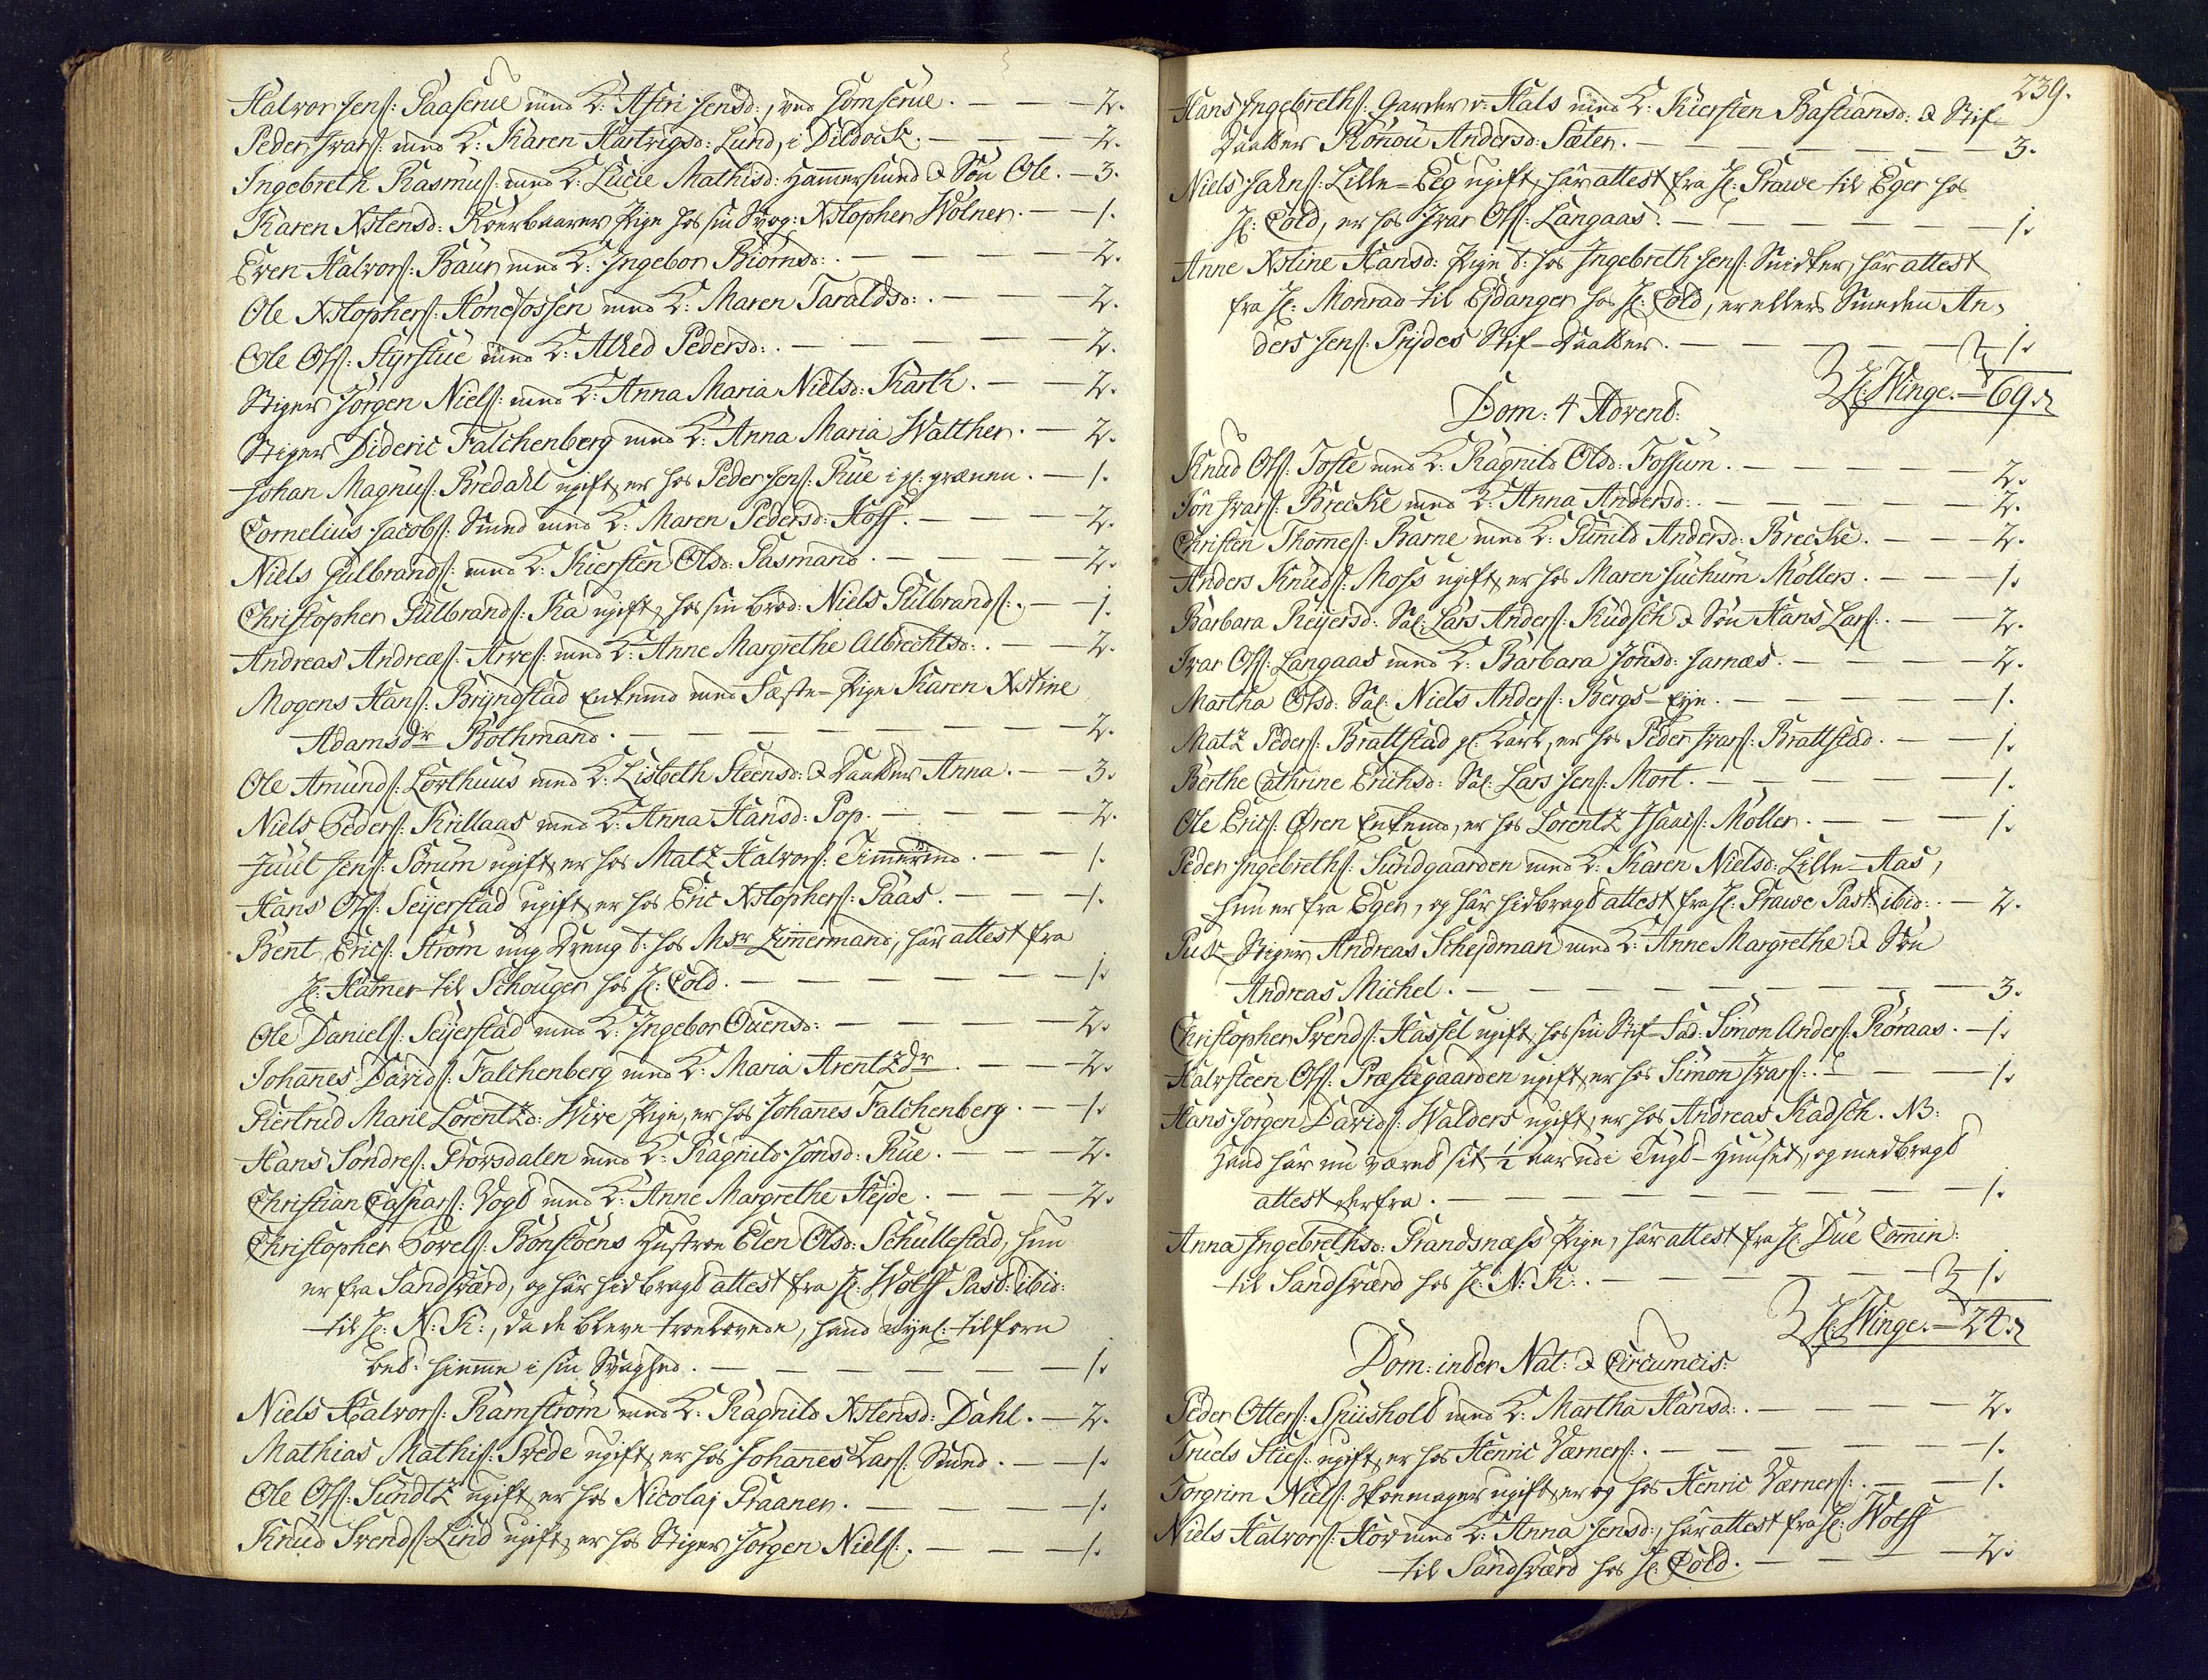 Halvor Jens: Gaaserue med K: Astri Jensd:, ved Gomserue. — — — 2.
Peder Ivars: med K: Karen Hartvigsd: Lund, i Dildvik. — — — 2.
Ingebreth Rasmus: med K: Lucie Mathisd: Hammersmed & Søn Ole. — 3.
Karen Xstensd: Pige hos sin Svog: Xstopher Wölner. — 1.
Even Halvors: Baur med K: Ingebor Biørnsd: — — — 2.
Ole Xstophers: Hønefossen med K: Maren Taraldsd: — — — 2.
Ole Ols: Styrstue med K: Alhed Pedersd: — — — 2.
Stiger Jørgen Niels: med K: Anna Maria Nielsd: Karth. — — 2.
Stiger Dideric Falchenberg med K: Anna Maria Walther. — 2.
Johan Magnus: Bredahl ugift, er hos Peder Jens: Rue i gl: grænen. — 1.
Cornelius Jacobs: Smed med K: Maren Pedersd: Hoff. — — — 2.
Niels Gulbrands: med K: Kiersten Olsd: Gasmand. — — — 2.
Christopher Gulbrands: Kaa ugift, hos sin brod: Niels Gulbrands: — 1.
Andreas Andreæs: Arves: med K: Anne Margrethe Albrechtsd: — 2.
Mogens Hans: Bryndstad Enkemd med Fæste-Pige Karen Xstine
Adamsdr Bothmand. — — — 2.
Ole Amunds: Lørthuus med K: Lisbeth Steensd: & Daatter Anna. — 3.
Niels Peders: Krillaas med K: Anna Hansd: Pop. — — — 2.
Juul Jens: Sørum ugift, er hos Matz Halvors: Timmermd. — — 1.
Hans Ols: Seyerstad ugift, er hos Eric Xstophers: Paas. — — 1.
Bent Erics: Strøm ung Dreng t: hos Msr Zimmermand, har attest fra
Hr: Hamer til Schouger hos Hr: Cold. — — — 1.
Ole Daniels: Seyerstad med K: Ingebor Ouensd: — — — 2.
Johannes Davids: Falchenberg med K: Maria Arentzdr — — 2.
Giertrud Marie Lorentzd: Wiwe Pige, er hos Johannes Falchenberg. — 1.
Hans Søndres: Provsdalen med K: Ragnild Jonsd: Rue. — — 2.
Christian Caspars: Vogd med K: Anne Margrethe Hejde. — — 2.
Christopher Povels: Bønstøens Hustroe Elen Olsd: Schullestad, hun
er fra Sandsværd, og har hidbragd attest fra Hr: Wolff Past: ibid:
til Hr: N: K:, da de bleve troelovede, hand tilforn
bet: hiemme i sin Svaghed. — — — 1.
Niels Halvors: Ramstrøm med K: Ragnild Xstensd: Dahl. — 2.
Mathias Mathis: Svede ugift, er hos Johannes Lars: Smed. — 1.
Ole Ols: Sundtz ugift, er hos Nicolaj Praanen. — — — 1.
Knud Svends: Lind ugift, er hos Stiger Jørgen Niels: — — 1.
239.
Hans Ingebreths: Garder v: Hals med K: Kiersten Bastiansd: & Stif-
Daatter Rønou Andersd: Sæter. — — — 3.
Niels Jahns: Lille-Eeg ugift, har attest fra Hr: Grawe til Eger hos
Hr: Cold, er hos Ivar Ols: Langaas. — — — 1.
Anne Xstine Hansd: Pige t: hos Ingebreth Jens: Snidker, har attest
fra Hr: Monrad til Ejdanger hos Hr: Cold, er ellers Smeden An-
ders Jens: Prydes Stif-Daatter. — — — 1.
Hr: Winge. — 69.
Dom: 4 Advend:
Knud Ols: Tofte med K: Ragnild Olsd: Fossum. — — — 2.
Jon Ivars: Brecke med K: Anna Andersd: — — — 2.
Christen Thommes: Barne med K: Gunild Andersd: Brecke. — — 2.
Anders Knuds: Moss ugift, er hos Maren Juchum Møllers. — — 1.
Barbara Reyersd: Sal: Lars Anders: Kudsch & Søn Hans Lars: — 2.
Ivar Ols: Langaas med K: Barbara Jonsd: Jarnæs. — — 2.
Martha Olsd: Sal: Niels Anders: Bergs-Eye. — — — 1.
Matz Peders: Brattstad gl: Karl, er hos Peder Ivars: Brattstad. — 1.
Berthe Cathrine Erichsd: Sal: Lars Jens: Mort. — — — 1.
Ole Erics: Øren Enkemd, er hos Lorentz Isaacs: Møller. — — 1.
Peder Ingebreths: Sundgaarden med K: Karen Nielsd: Lille-Aas,
hun er fra Eger, og har hidbragd attest fra Hr: Grawe Past: ibid: — 2.
Puk-Stiger Andreas Schejdman med K: Anne Margrethe & Søn
Andreas Michel. — — — 3.
Christopher Svends: Hassel ugift, hos sin Stif-Fad: Simon Anders: Røraas. — 1.
Halvsteen Ols: Præstegaarden ugift, er hos Simon Ivars: — — 1.
Hans Jørgen Davids: Walders ugift, er hos Andreas Kadsch. NB:
hand har nu væred sit 1/2 aar udi Tugt-Huuset, og medbragd
attest derfra. — — — 1.
Anna Ingebrethsd: Grandsnæss Pige, har attest fra Hr: Due Commin:
til Sandsværd hos Hr: N: K: — — — 1.
Hr: Winge. — 24.
Dom: inter Nat: & Circumcis:
Peder Otters: Spiisholt med K: Martha Hansd: — — — 2.
Truels Sties: ugift, er hos Henric Værners: — — — 1.
Torgrim Niels: Skomager ugift, er og hos Henric Værners: — — 1.
Niels Halvors: Hov med K: Anna Jensd:, har attest fra Hr: Wolff
til Sandsværd hos Hr: Cold. — — — 2.